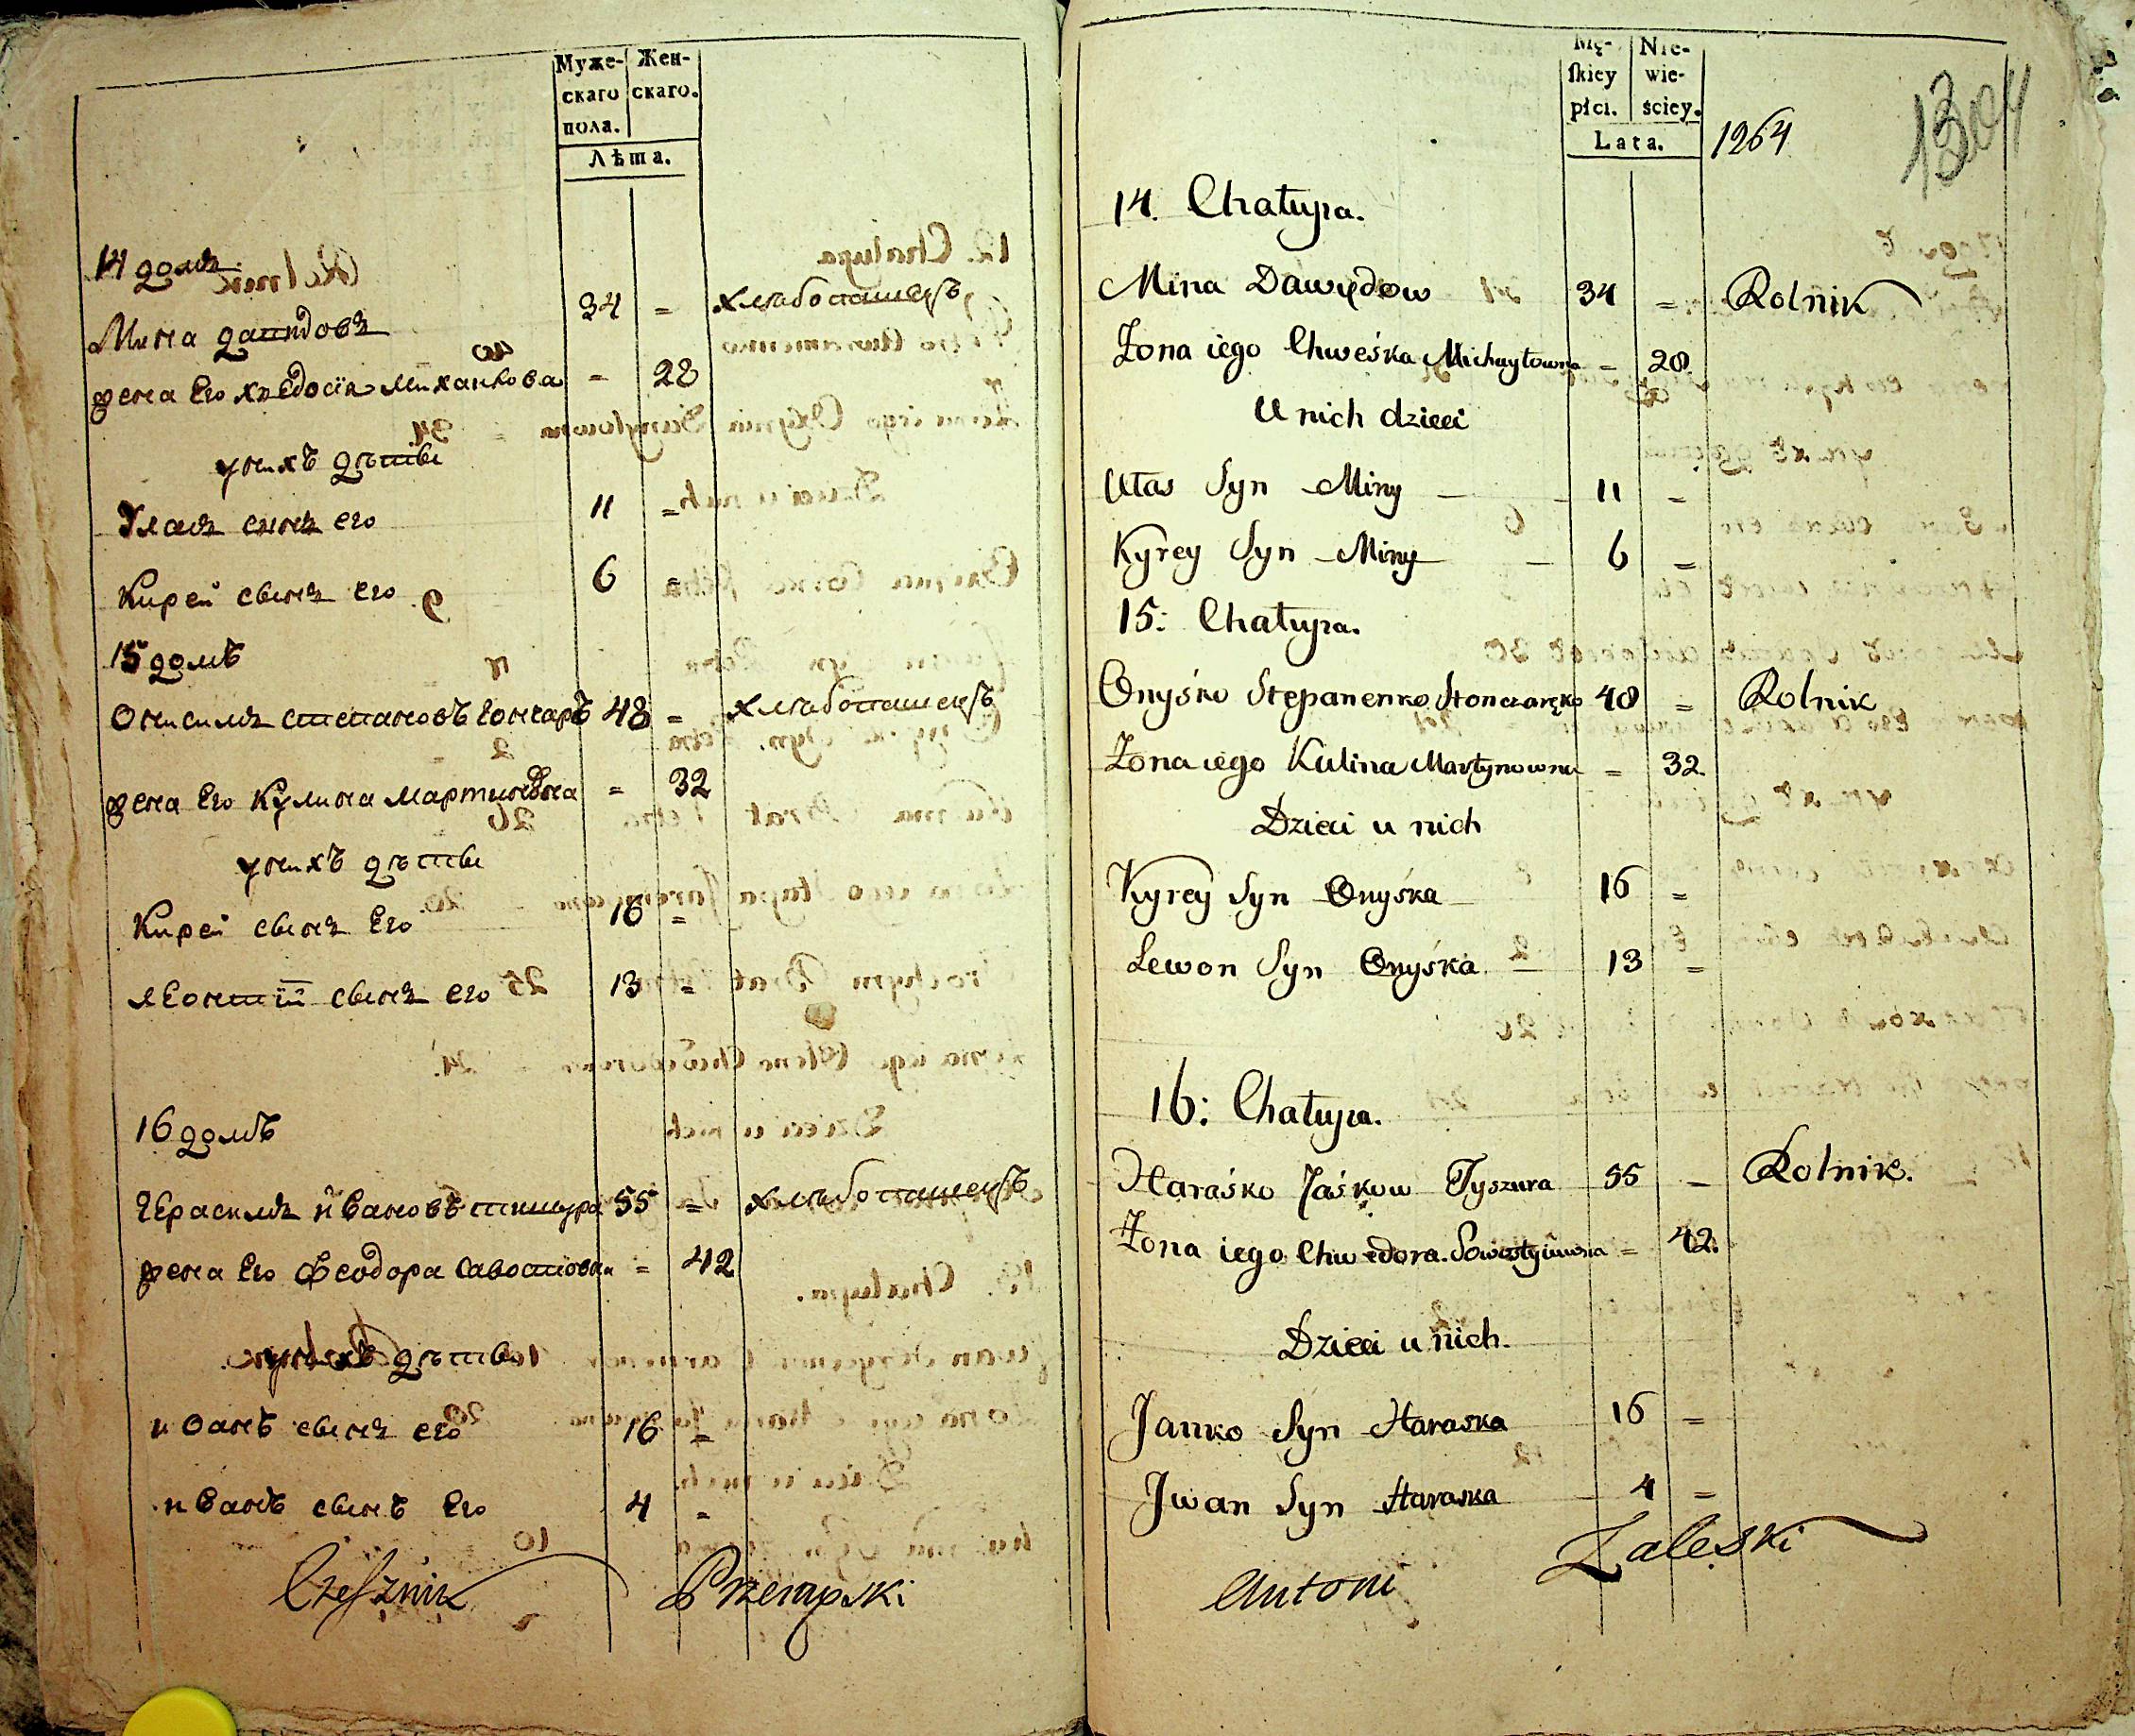 Муже- Жен-
скаго скаго.
пола.
Лѣта.
14 домъ
Мина давидовъ 34 = хлѣбопашецъ
жена Его хведосія михаилова = 28
у нихъ дѣтеи
Уласъ сынъ его 11 =
Кирей сынъ его 6 =
15 домъ
Онисимъ степановъ гончаръ 48 = хлѣбопашецъ
жена Его Кулина мартинова = 32
у нихъ дѣтеи
Кирей сынъ Его 16 =
леонтій сынъ его 13 =
16 домъ
Герасимъ ивановъ тишура 55 = хлѣбопашецъ
жена Его Феодора = 42
у нихъ дѣтеи
иоанъ сынъ его 16 =
иванъ сынъ Его 4 =
Czesznik Przemyski
Mę- Nie-
skiey wie-
płci. ściey.
Lata.
1264
14. Chałupa.
Mina Dawydow 34 = Rolnik
Żona iego Chweśka Michayłowna = 28
U nich dzieci
Ułas Syn Miny 11 =
Kyrey Syn Miny 6 =
15: Chałupa.
Onyśko Stepanenko Honczarenko 48 = Rolnik
Żona iego Kulina Martynowna = 32
Dzieci u nich
Kyrey Syn Onyśka 16 =
Lewon Syn Onyśka 13 =
16: Chałupa.
Haraśko Jaśkow Tyszura 55 = Rolnik.
Żona iego Chwedora = 42.
Dzieci u nich.
Janko Syn Haraska 16 =
Jwan Syn Haraska 4 =
Antoni Zaleski